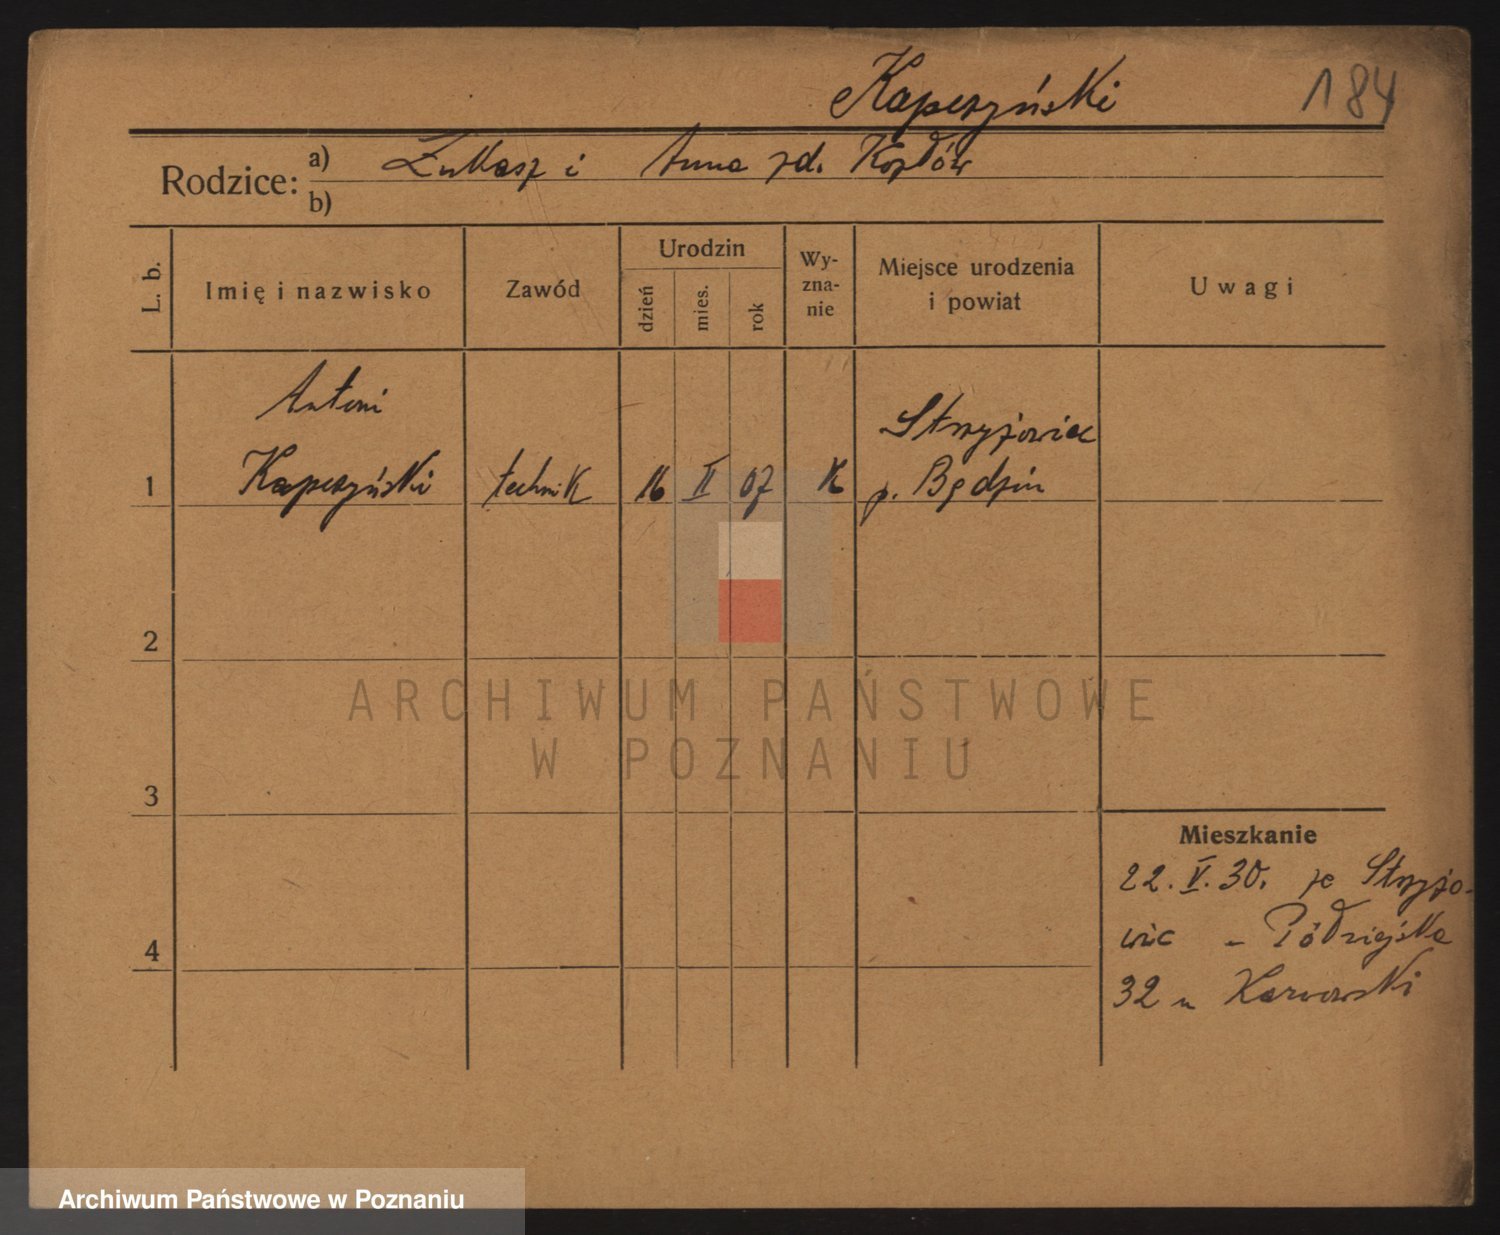 Kapczyński 184
Rodzice: a) Łukasz i Anna zd. Kozłów
b)
L. b. Imię i nazwisko Zawód Urodzin dzień mies. rok Wyznanie Miejsce urodzenia i powiat Uwagi
Antoni
Strzyżowice
1 Kapczyński technik 16 II 07 K p. Będzin
2
ARCHIWUM PAŃSTWOWE
W POZNANIU
3
Mieszkanie
22. V. 30. ze Strzyżo-
wic -
4
32 u Karwowski
Archiwum Państwowe w Poznaniu